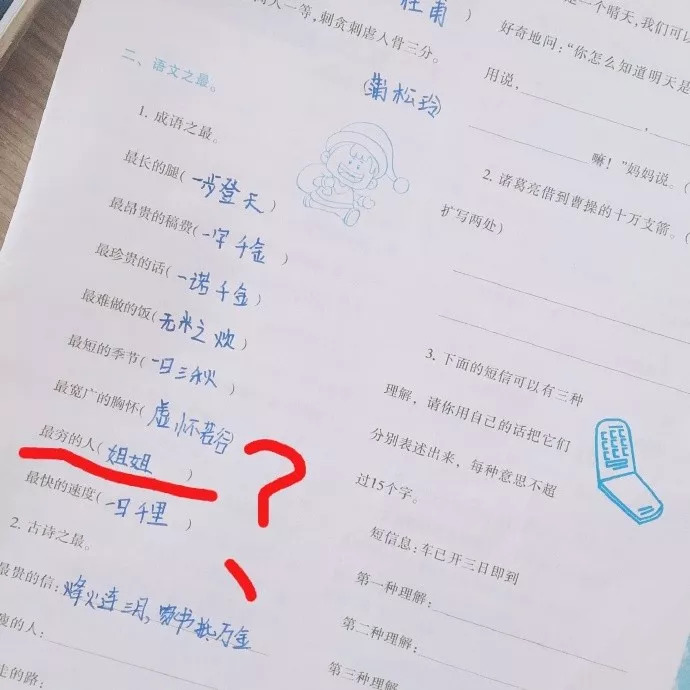 杜甫
）
人一等，刺贪刺虐入骨三分。
（蒲松玲）
二、语文之最。
1. 成语之最。
最长的腿（一步登天）
最昂贵的稿费（一字千金）
最珍贵的话（一诺千金）
最难做的饭（无米之炊）
最短的季节（一日三秋）
最宽广的胸怀（虚怀若谷）
最穷的人（姐姐）
？
最快的速度（一日千里）
2. 古诗之最。
最贵的信：烽火连三月，家书抵万金
瘦的人：
走的路：
是一个晴天，我们可以
好奇地问：“你怎么知道明天是
用说，，
嘛！”妈妈说。（
2. 诸葛亮借到曹操的十万支箭。（
扩写两处）
3. 下面的短信可以有三种
理解，请你用自己的话把它们
分别表述出来，每种意思不超
过15个字。
短信息：车已开三日即到
第一种理解：
第二种理解：
第三种理解：